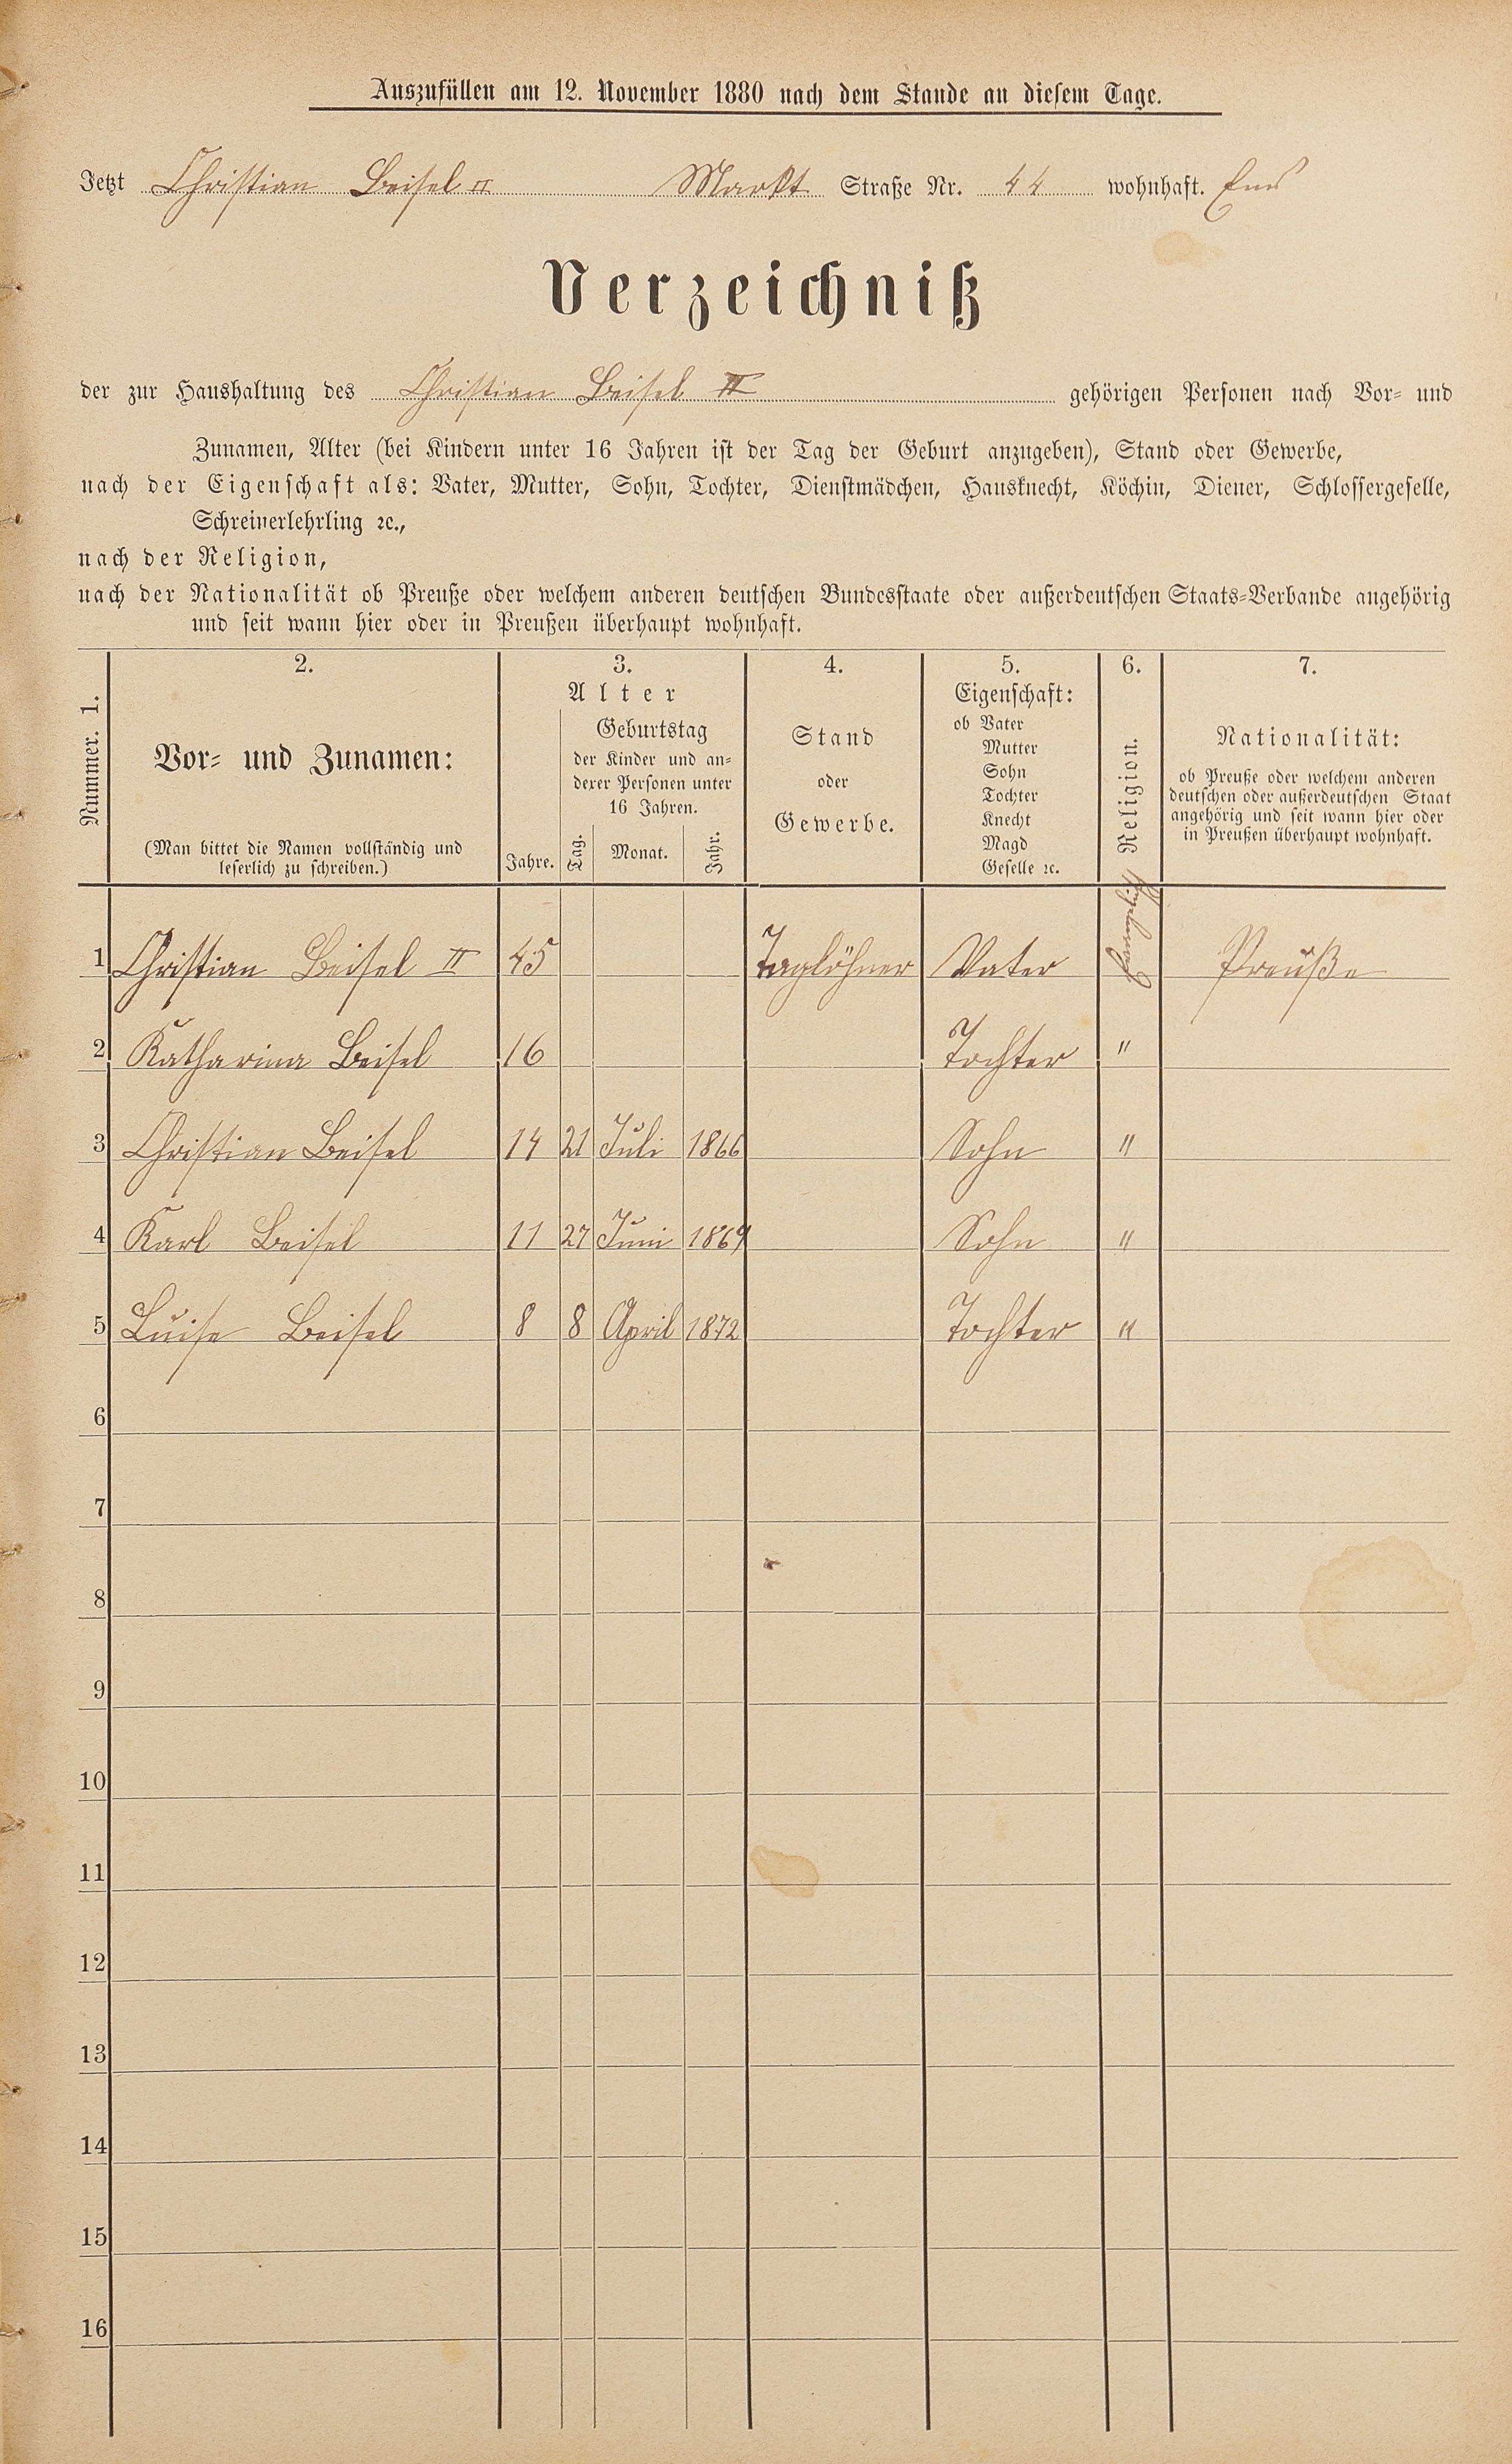 Auszufüllen am 12. November 1880 nach dem Stande an diesem Tage.
Jetzt Christian Beisel II Markt Straße Nr. 44 wohnhaft. Ems
Verzeichniß
der zur Haushaltung des Christian Beisel II gehörigen Personen nach Vor- und
Zunamen, Alter (bei Kindern unter 16 Jahren ist der Tag der Geburt anzugeben), Stand oder Gewerbe,
nach der Eigenschaft als: Vater, Mutter, Sohn, Tochter, Dienstmädchen, Hausknecht, Köchin, Diener, Schlossergeselle,
Schreinerlehrling ꝛc.,
nach der Religion,
nach der Nationalität ob Preuße oder welchem anderen deutschen Bundesstaate oder außerdeutschen Staats-Verbande angehörig
und seit wann hier oder in Preußen überhaupt wohnhaft.
Nummer. 1.
2.
Vor- und Zunamen:
(Man bittet die Namen vollständig und
leserlich zu schreiben.)
3.
Alter
Jahre.
Geburtstag
der Kinder und an-
derer Personen unter
16 Jahren.
Tag. Monat. Jahr.
4.
Stand
oder
Gewerbe.
5.
Eigenschaft:
ob Vater
Mutter
Sohn
Tochter
Knecht
Magd
Geselle ꝛc.
6.
Religion.
7.
Nationalität:
ob Preuße oder welchem anderen
deutschen oder außerdeutschen Staat
angehörig und seit wann hier oder
in Preußen überhaupt wohnhaft.
1 Christian Beisel II 45 Taglöhner Vater Evangelisch Preuße
2 Katharina Beisel 16 Tochter "
3 Christian Beisel 14 21 Juli 1866 Sohn "
4 Karl Beisel 11 27 Juni 1869 Sohn "
5 Luise Beisel 8 8 April 1872 Tochter "
6
7
8
9
10
11
12
13
14
15
16